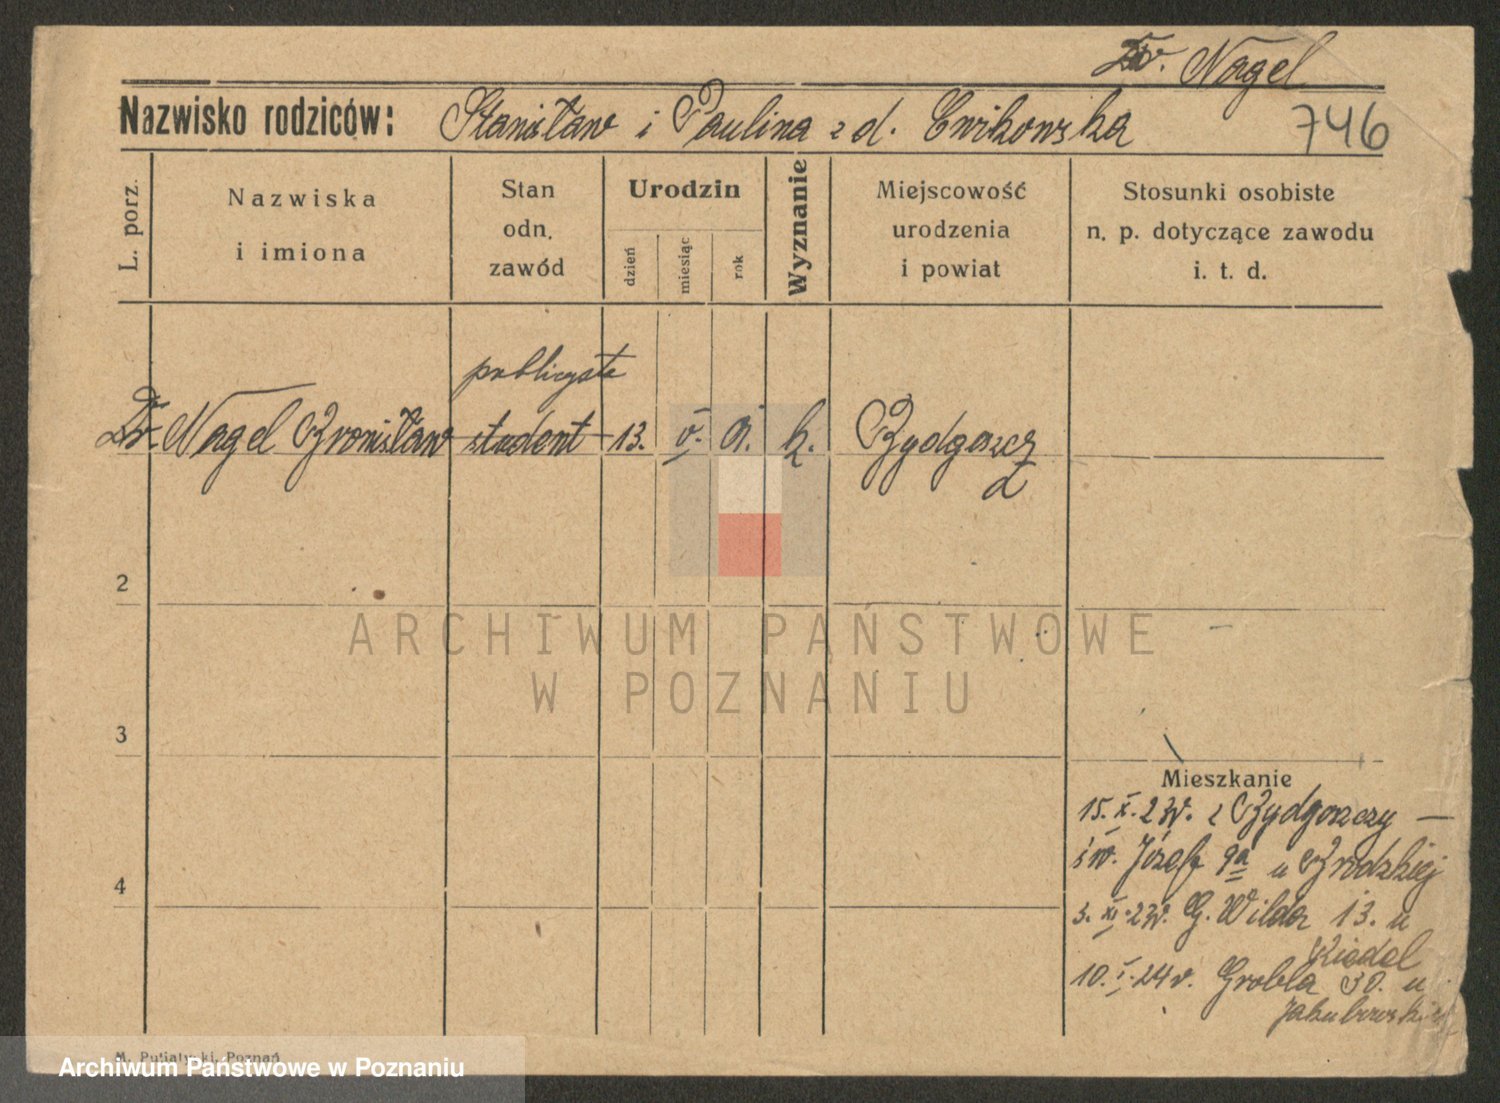 Dr. Nagel
Nazwisko rodziców: Stanisław i Paulina z d. Cwikowska
746
L. porz.
Nazwiska
i imiona
Stan
odn.
zawód
Urodzin
dzień
miesiąc
rok
Wyznanie
Miejscowość
urodzenia
i powiat
Stosunki osobiste
n. p. dotyczące zawodu
i. t. d.
publicysta
Dr. Nagel Bronisław student 13. V. 01. k. Bydgoszcz
2
3
4
Mieszkanie
15. X. 23r. z Bydgoszczy —
św. Józefa 9a u Brodzkiej
3. XI. 23r. G. Wilda 13. u
Riedel
10. I. 24r. Grobla 30. u
Jakubowskiej
ARCHIWUM PAŃSTWOWE
W POZNANIU
M. Putiatycki, Poznań
Archiwum Państwowe w Poznaniu